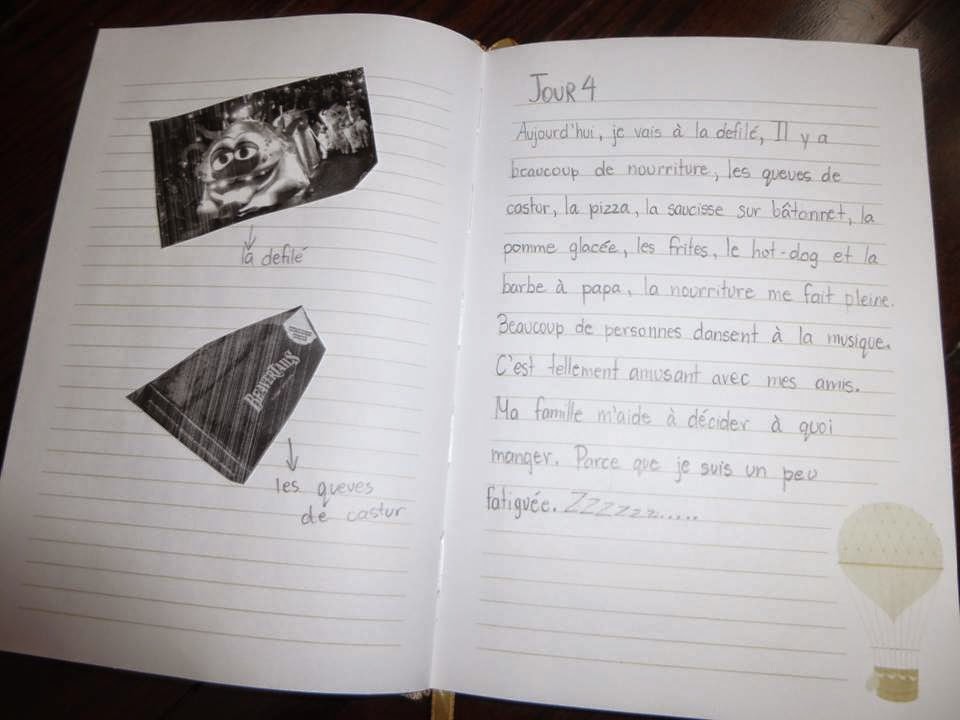 la defilé
BEAVERTAILS
les queves
de castur
JOUR 4
Aujourd'hui, je vais à la defilé, Il y a
beaucoup de nourriture, les queves de
castur, la pizza, la saucisse sur bâtonnet, la
pomme glacée, les frites, le hot-dog et la
barbe à papa, la nourriture me fait pleine.
Beaucoup de personnes dansent à la musique.
C'est tellement amusant avec mes amis.
Ma famille m'aide à décider à quoi
manger. Parce que je suis un peu
fatiguée. ZZZZzzz.....